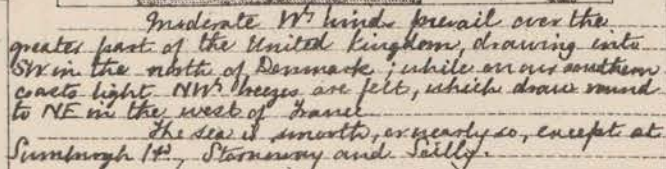 Moderate Wly winds prevail over the
greater part of the United Kingdom, drawing into
SW in the north of Denmark; while on our southern
coasts light NWly breezes are felt, which draw round
to NE in the west of France.
The sea is smooth, or nearly so, except at
Sumburgh Hd, Stornoway and Scilly.